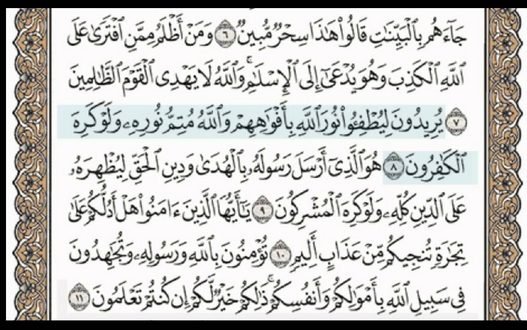 جَآءَهُم بِٱلْبَيِّنَٰتِ قَالُوا۟ هَٰذَا سِحْرٌ مُّبِينٌ ٦ وَمَنْ أَظْلَمُ مِمَّنِ ٱفْتَرَىٰ عَلَى
ٱللَّهِ ٱلْكَذِبَ وَهُوَ يُدْعَىٰٓ إِلَى ٱلْإِسْلَٰمِ ۚ وَٱللَّهُ لَا يَهْدِى ٱلْقَوْمَ ٱلظَّٰلِمِينَ
٧ يُرِيدُونَ لِيُطْفِـُٔوا۟ نُورَ ٱللَّهِ بِأَفْوَٰهِهِمْ وَٱللَّهُ مُتِمُّ نُورِهِۦ وَلَوْ كَرِهَ
ٱلْكَٰفِرُونَ ٨ هُوَ ٱلَّذِىٓ أَرْسَلَ رَسُولَهُۥ بِٱلْهُدَىٰ وَدِينِ ٱلْحَقِّ لِيُظْهِرَهُۥ
عَلَى ٱلدِّينِ كُلِّهِۦ وَلَوْ كَرِهَ ٱلْمُشْرِكُونَ ٩ يَٰٓأَيُّهَا ٱلَّذِينَ ءَامَنُوا۟ هَلْ أَدُلُّكُمْ عَلَىٰ
تِجَٰرَةٍ تُنجِيكُم مِّنْ عَذَابٍ أَلِيمٍ ١٠ تُؤْمِنُونَ بِٱللَّهِ وَرَسُولِهِۦ وَتُجَٰهِدُونَ
فِى سَبِيلِ ٱللَّهِ بِأَمْوَٰلِكُمْ وَأَنفُسِكُمْ ۚ ذَٰلِكُمْ خَيْرٌ لَّكُمْ إِن كُنتُمْ تَعْلَمُونَ ١١